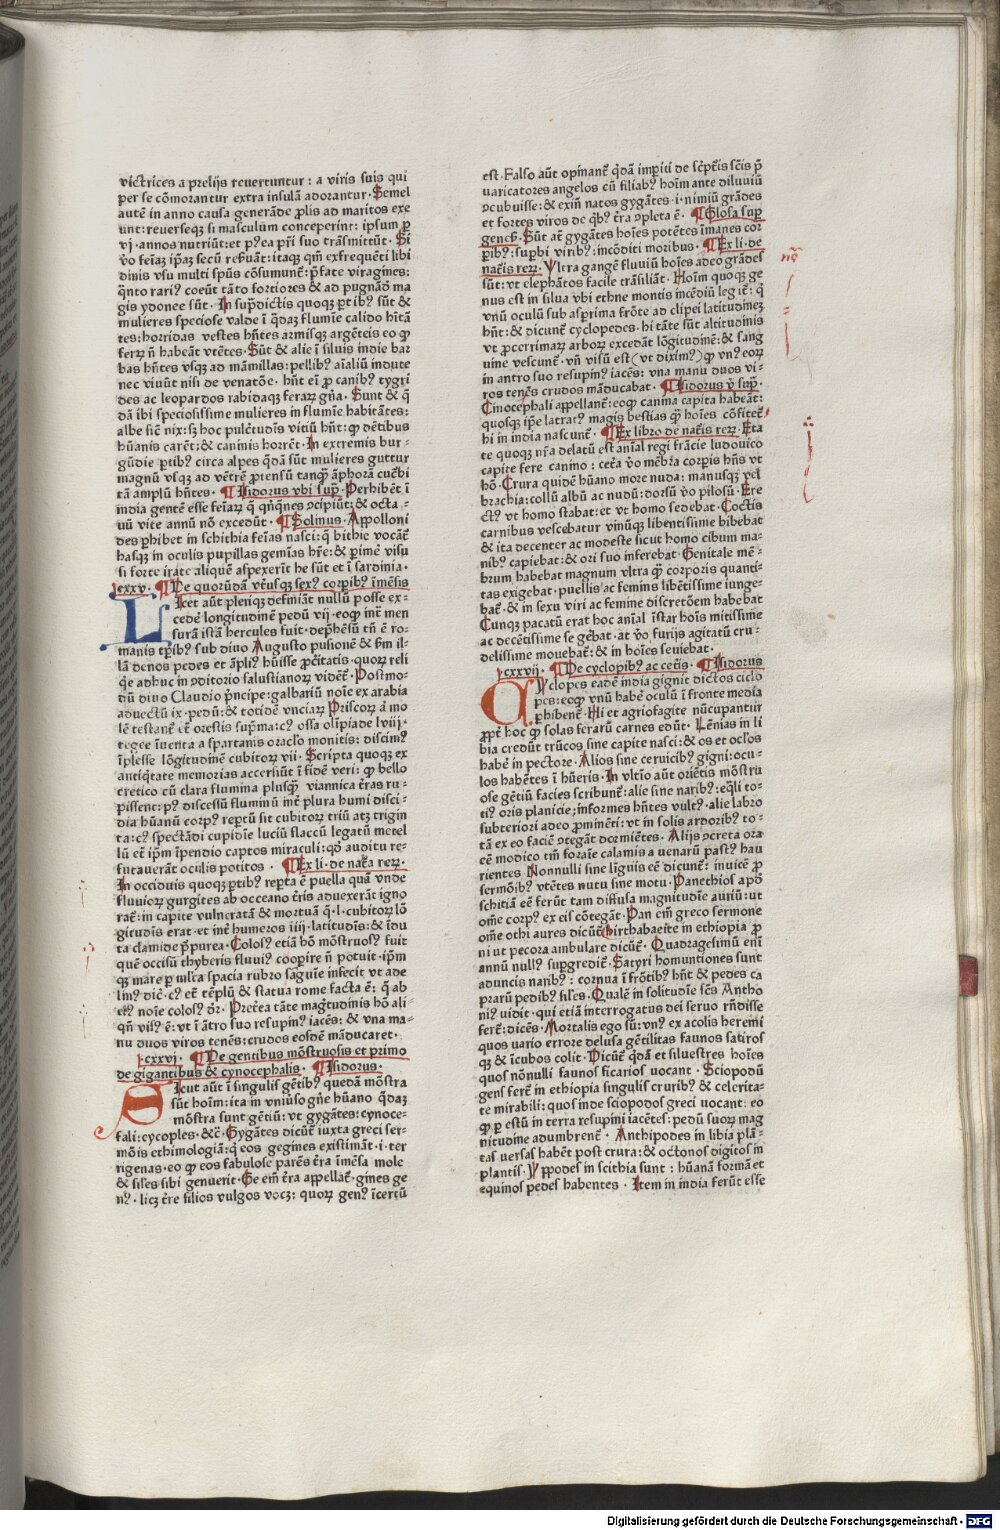 victrices a prelijs reuertuntur : a viris suis qui
per se cōmorantur extra insulā adorantur · Semel
autē in anno causa generāde ꝓlis ad maritos exe
unt: reuerseqꝫ si masculum conceperint: ipsum ꝑ
vij · annos nutriūt: et pꝰ ea pr̄i suo trāsmittūt · Si
v̄o feīaꝫ ip̄aꝫ secū reẜuāt: itaqꝫ qm̄ exfrequēti libi
dinis vsu multi sp̄us cōsumunt̄: p̄fate viragines:
qn̄to rariꝰ coeūt tāto fortiores & ad pugnādō ma
gis ydonee sūt · In sup̄dictis quoqꝫ ꝑtibꝰ sūt &
mulieres speciose valde ī qͥdaꝫ flumīe calido hītā
tes: horridas vestes hn̄tes armisqꝫ argēteis eo ꝙ
ferꝝ nō habeāt vtētes · Sūt & alie ī siluis indie bar
bas hn̄tes vsqꝫ ad māmillas: pellibꝰ aīaliū indute
nec viuūt nisi de venatōe · hn̄t eī ꝓ canibꝰ tygri
des ac leopardos rabidaqꝫ feraꝝ gn̄a · Sunt & q̄
dā ibi speciosissime mulieres in flumīe habitātes:
albe sic̄ nix: sꝫ hoc pulc̄tudīs vitiū hn̄t: ꝙ dētibus
hūanis carēt: & caninis horrēt · In extremis bur-
gūdie ꝑtibꝰ circa alpes q̄dā sūt mulieres guttur
magnū vsqꝫ ad vētrē ꝓtensū tanqꝫ āphorā cuc̄bi
tā amplū hn̄tes · ¶ Isidorus vbi supͣ · Perhibēt ī
india gentē esse feīaꝝ q̄ qn̄qn̄es ↄcipiūt: & octa-
uū vite annū nō excedūt · ¶ Solinus · Appolloni
des perhibet in schithia feīas nasci: q̄ bithie vocāt̄
hasqꝫ in oculis pupillas gemīas hr̄e: & perimē visu
si forte irate aliquē aspexerīt he sūt et ī sardinia ·
·cxxv· ¶ De quorūdā vtriusqꝫ sexꝰ corꝑibꝰ īmēsis
Licet aūt pleriqꝫ definiāt nullū posse ex-
cedē longitudinē pedū vij · eoqꝫ int̄ men
surā istā hercules fuit · dep̄hēsū tn̄ ē ro-
manis tꝑibꝰ sub diuo Augusto pusionē &
lā denos pedes et āplꝰ hūisse ꝓcitatis · quoꝝ reli
qͥe adhuc in ↄditorio salustianoꝝ vident̄ · Postmo-
dū diuo Claudio p̄ncipe: galbariū noīe ex arabia
aduectū ix · pedū: & totidē vnciaꝝ Priscoꝝ
lē testant̄ · Scripta quoqꝫ ex
antiqtate memorias accersiūt ī fidē veri: ꝙ bello
cretico cū clara flumina plusqꝫ viannica t̄ras ru-
pissent: pꝰ discessū fluminū int̄ plura humi disci-
dia hūanū corpꝰ reptū sit cubitoꝝ triū atꝫ trigin
ta: cꝰ spectādi cupidīe luciū flaccū legatū metel
lū et̄ ip̄m īpendio captos miraculi: qd̄ auditu re-
futauerāt oculis potitos · ¶ Ex li · de nat̄a reꝝ ·
In occiduis quoqꝫ ꝑtibꝰ repta ē puella quā vnde
fluuioꝝ gurgites ab occeano t̄ris aduexerāt igno
rat̄: in capite vulneratā & mortuā q̄ · l · cubitoꝝ lō
gitudīs erat · et int̄ humeros iiij · latitudīs: & īdu
ta clamide p̄purea · Colosꝰ etiā hō mōstruosꝰ fuit
quē occisū thyberis fluuiꝰ cooperire n̄ potuit · ip̄m
qꝫ mare ꝑ ml̄ta spacia rubro saguīe infecit vt ade
līnꝰ dic̄ · cꝰ et̄ tēplū & statua rome facta ē: q̄ ab
eiꝰ noīe colosꝰ dr̄ · Pret̄ea tāte maḡtudinis hō ali-
qn̄ visꝰ ē: vt ī ātro suo resupinꝰ iacēs: & vna ma-
nu duos viros tenēs: crudos eosdē māducaret ·
·cxxvj· ¶ De gentibus mōstruosis et primo
de gigantibus & cynocephalis · ¶ Isidorus ·
Sicut aūt ī singulis gētibꝰ quedā mōstra
sūt hoīm: ita in vniūso gn̄e hūano q̄daꝫ
mōstra sunt gētiū: vt gygātes: cynoce-
fali: cycoples: &c̄ · Gygātes dicūt̄ iuxta greci ser-
mōis ethimologiā: q̄ eos gegines existimāt · i · ter
rigenas · eo ꝙ eos fabulose parēs t̄ra īmēsa mole
& sil̄es sibi genuerit · Ge em̄ t̄ra appellat̄ · gines ge
nꝰ · licꝫ t̄re filios vulgos vocꝫ: quoꝝ genꝰ īcertū
est · Falso aūt opinant̄ q̄dā imꝑiti de sc̄pt̄is sc̄is p̄
uaricatores angelos cū filiabꝰ hoīm ante diluuiū
ↄcubuisse: & exin̄ natos gygātes · i · nimiū grādes
et fortes viros de qͥbꝰ t̄ra ↄpleta ē · ¶ Glosa suꝑ
genesꝰ · Sūt at̄ gygātes hoīes potētes īmanes cor
ꝑibꝰ: suꝑbi viribꝰ: incōditi moribus · ¶ Ex li · de
nat̄is reꝝ · Vltra gangē fluuiū hoīes adeo grādes
sūt: vt elephātos facile trāsiliāt · Hoīm quoqꝫ ge
nus est in silua vbi ethne montis incēdiū leg it̄: q̄
vnū oculū sub asꝑrima frōte ad clipei latitudineꝫ
hn̄t: & dicunt̄ cyclopedes · hi tāte sūt altitudinis
vt ꝓcerrimaꝝ arboꝝ excedāt lōgitudinē: & sang
uine vescunt̄ · vn̄ visū est (vt diximꝰ) ꝙ vnꝰ eoꝝ
in antro suo resupinꝰ iacēs: vna manu duos vi-
ros tenēs crudos māducabat · ¶ Isidorus v̄ supͣ ·
Cinocephali appellant̄: eoqꝫ canina capita habeāt:
quosqꝫ ip̄e latratꝰ magis bestias qꝫ hoīes cōfitet̄
hi in india nascunt̄ · ¶ Ex libro de nat̄is reꝝ · Eta
te quoqꝫ nr̄a delatū est anīal regi frācie ludouico
capite fere canino : cet̄a v̄o mēbra corpis hn̄s vt
hō · Crura quidē hūano more nuda: manusqꝫ vel
brachia: collū albū ac nudū: dorsū v̄o pilosū · Ere
ctꝰ vt homo stabat: et vt homo sedebat · Coctis
carnibus vescebatur vinūqꝫ libentissime bibebat
& ita decenter ac modeste sicut homo cibum ma-
nibꝰ capiebat: & ori suo inferebat · Genitale mē-
brum habebat magnum vltra qꝫ corporis quanti-
tas exigebat · puellis ac feminis libētissime iunge-
bat̄ · & in sexu viri ac femine discretōem habebat
Cunqꝫ pacatū erat hoc anīal īstar hoīs mitissime
ac decētissime se gēbat · at v̄o furijs agitatū cru-
delissime mouebat̄: & in hoīes seuiebat ·
·cxxvij· ¶ De cyclopibꝰ ac cet̄is · ¶ Isidorus
Cyclopes eadē india gignit dictos ciclo
pes: eoqꝫ vnū habē oculū ī fronte media
ꝑhibent̄ · Hi et agriofagite nūcupantur
ꝓpt̄ hoc ꝙ solas ferarū carnes edūt · Lēnias in li
bia credūt trūcos sine capite nasci: & os et oclōs
habē in pectore · Alios sine ceruicibꝰ gigni: ocu-
los habētes ī hūeris · In vltīo aūt oriētis mōstru
ose gētiū facies scribunt̄: alie sine naribꝰ: eqͣli to-
tiꝰ oris planicie; informes hn̄tes vultꝰ · alie labro
subteriori adeo ꝓmineti: vt in solis ardoribꝰ to-
tā ex eo faciē ↄtegāt dormiētes · Alijs ↄcreta ora
cē modico tm̄ foraīe calamis a uenarū pastꝰ hau
rientes Nonnulli sine līgnis cē dicunt̄: inuicē ꝓ
sermōibꝰ vtētes nutu sine motu · Panethios apd̄
schitiā cē ferūt tam diffusa magnitudīe auriū: ut
om̄e corpꝰ ex eis cōtegāt · Pan em̄ greco sermone
om̄e othi aures dicūt̄ Girthabaeite in ethiopia ꝓ
ni ut pecora ambulare dicūt̄ · Quadragesimū eni
annū nullꝰ supgredit̄ · Satyri homuntiones sunt
aduncis naribꝰ : cornua ī frōtibꝰ hn̄t & pedes ca
prarū pedibꝰ sil̄es · Qualē in solitudīe sc̄s Antho
niꝰ uidit · qui etiā interrogatus dei seruo rn̄disse
fert̄: dicēs · Mortalis ego sū: vnꝰ ex acolis heremi
quos vario errore delusa gētilitas faunos satiros
qꝫ & īcubos colit · Dicūt̄ q̄dā et siluestres hoīes
quos nōnulli faunos ficarios uocant · Sciopodū
gens fert̄ in ethiopia singulis cruribꝰ & celerita-
te mirabili: quos inde sciopodos greci uocant: eo
ꝙ ꝑ estū in terra resupini iacētes: pedū suoꝝ mag
nitudine adumbrent̄ · Anthipodes in libia plā-
tas versas habēt post crura: & octonos digitos in
plantis · Yppodes in scithia sunt : hūanā formā et
equinos pedes habentes · Item in india ferūt esse
Digitalisierung gefördert durch die Deutsche Forschungsgemeinschaft - DFG